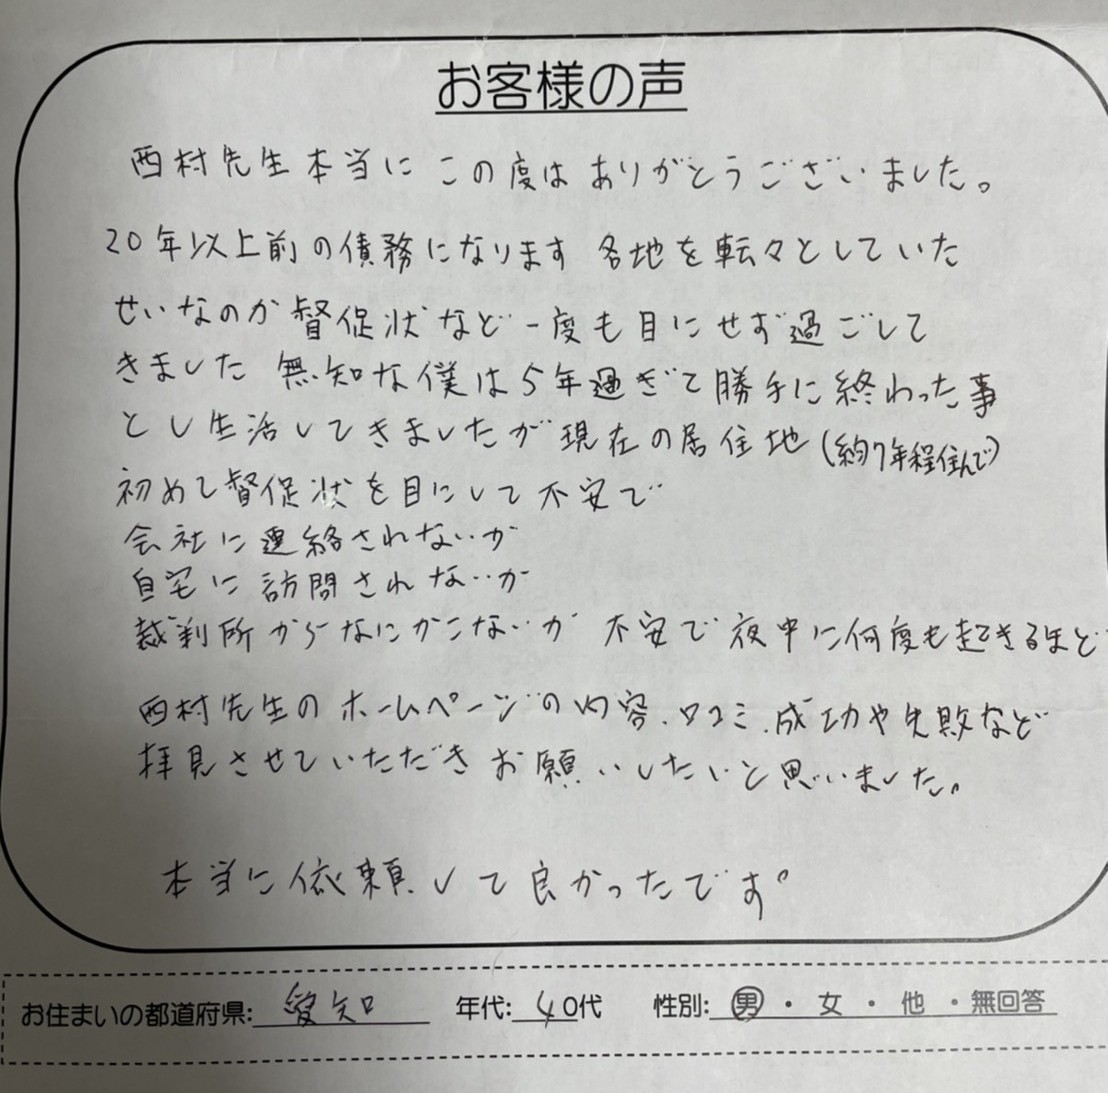 お客様の声
西村先生本当にこの度はありがとうございました。
20年以上前の債務になります 各地を転々としていた
せいなのか督促状など一度も目にせず過ごして
きました 無知な僕は5年過ぎて勝手に終わった事
とし生活してきましたが現在の居住地(約7年程住んで)
初めて督促状を目にして不安で
会社に連絡されないか
自宅に訪問されないか
裁判所からなにかこないか 不安で夜中に何度も起きるほど
西村先生のホームページの内容、口コミ、成功や失敗など
拝見させていただきお願いしたいと思いました。
本当に依頼して良かったです。
お住まいの都道府県: 愛知 年代: 40代 性別: 男・女・他・無回答